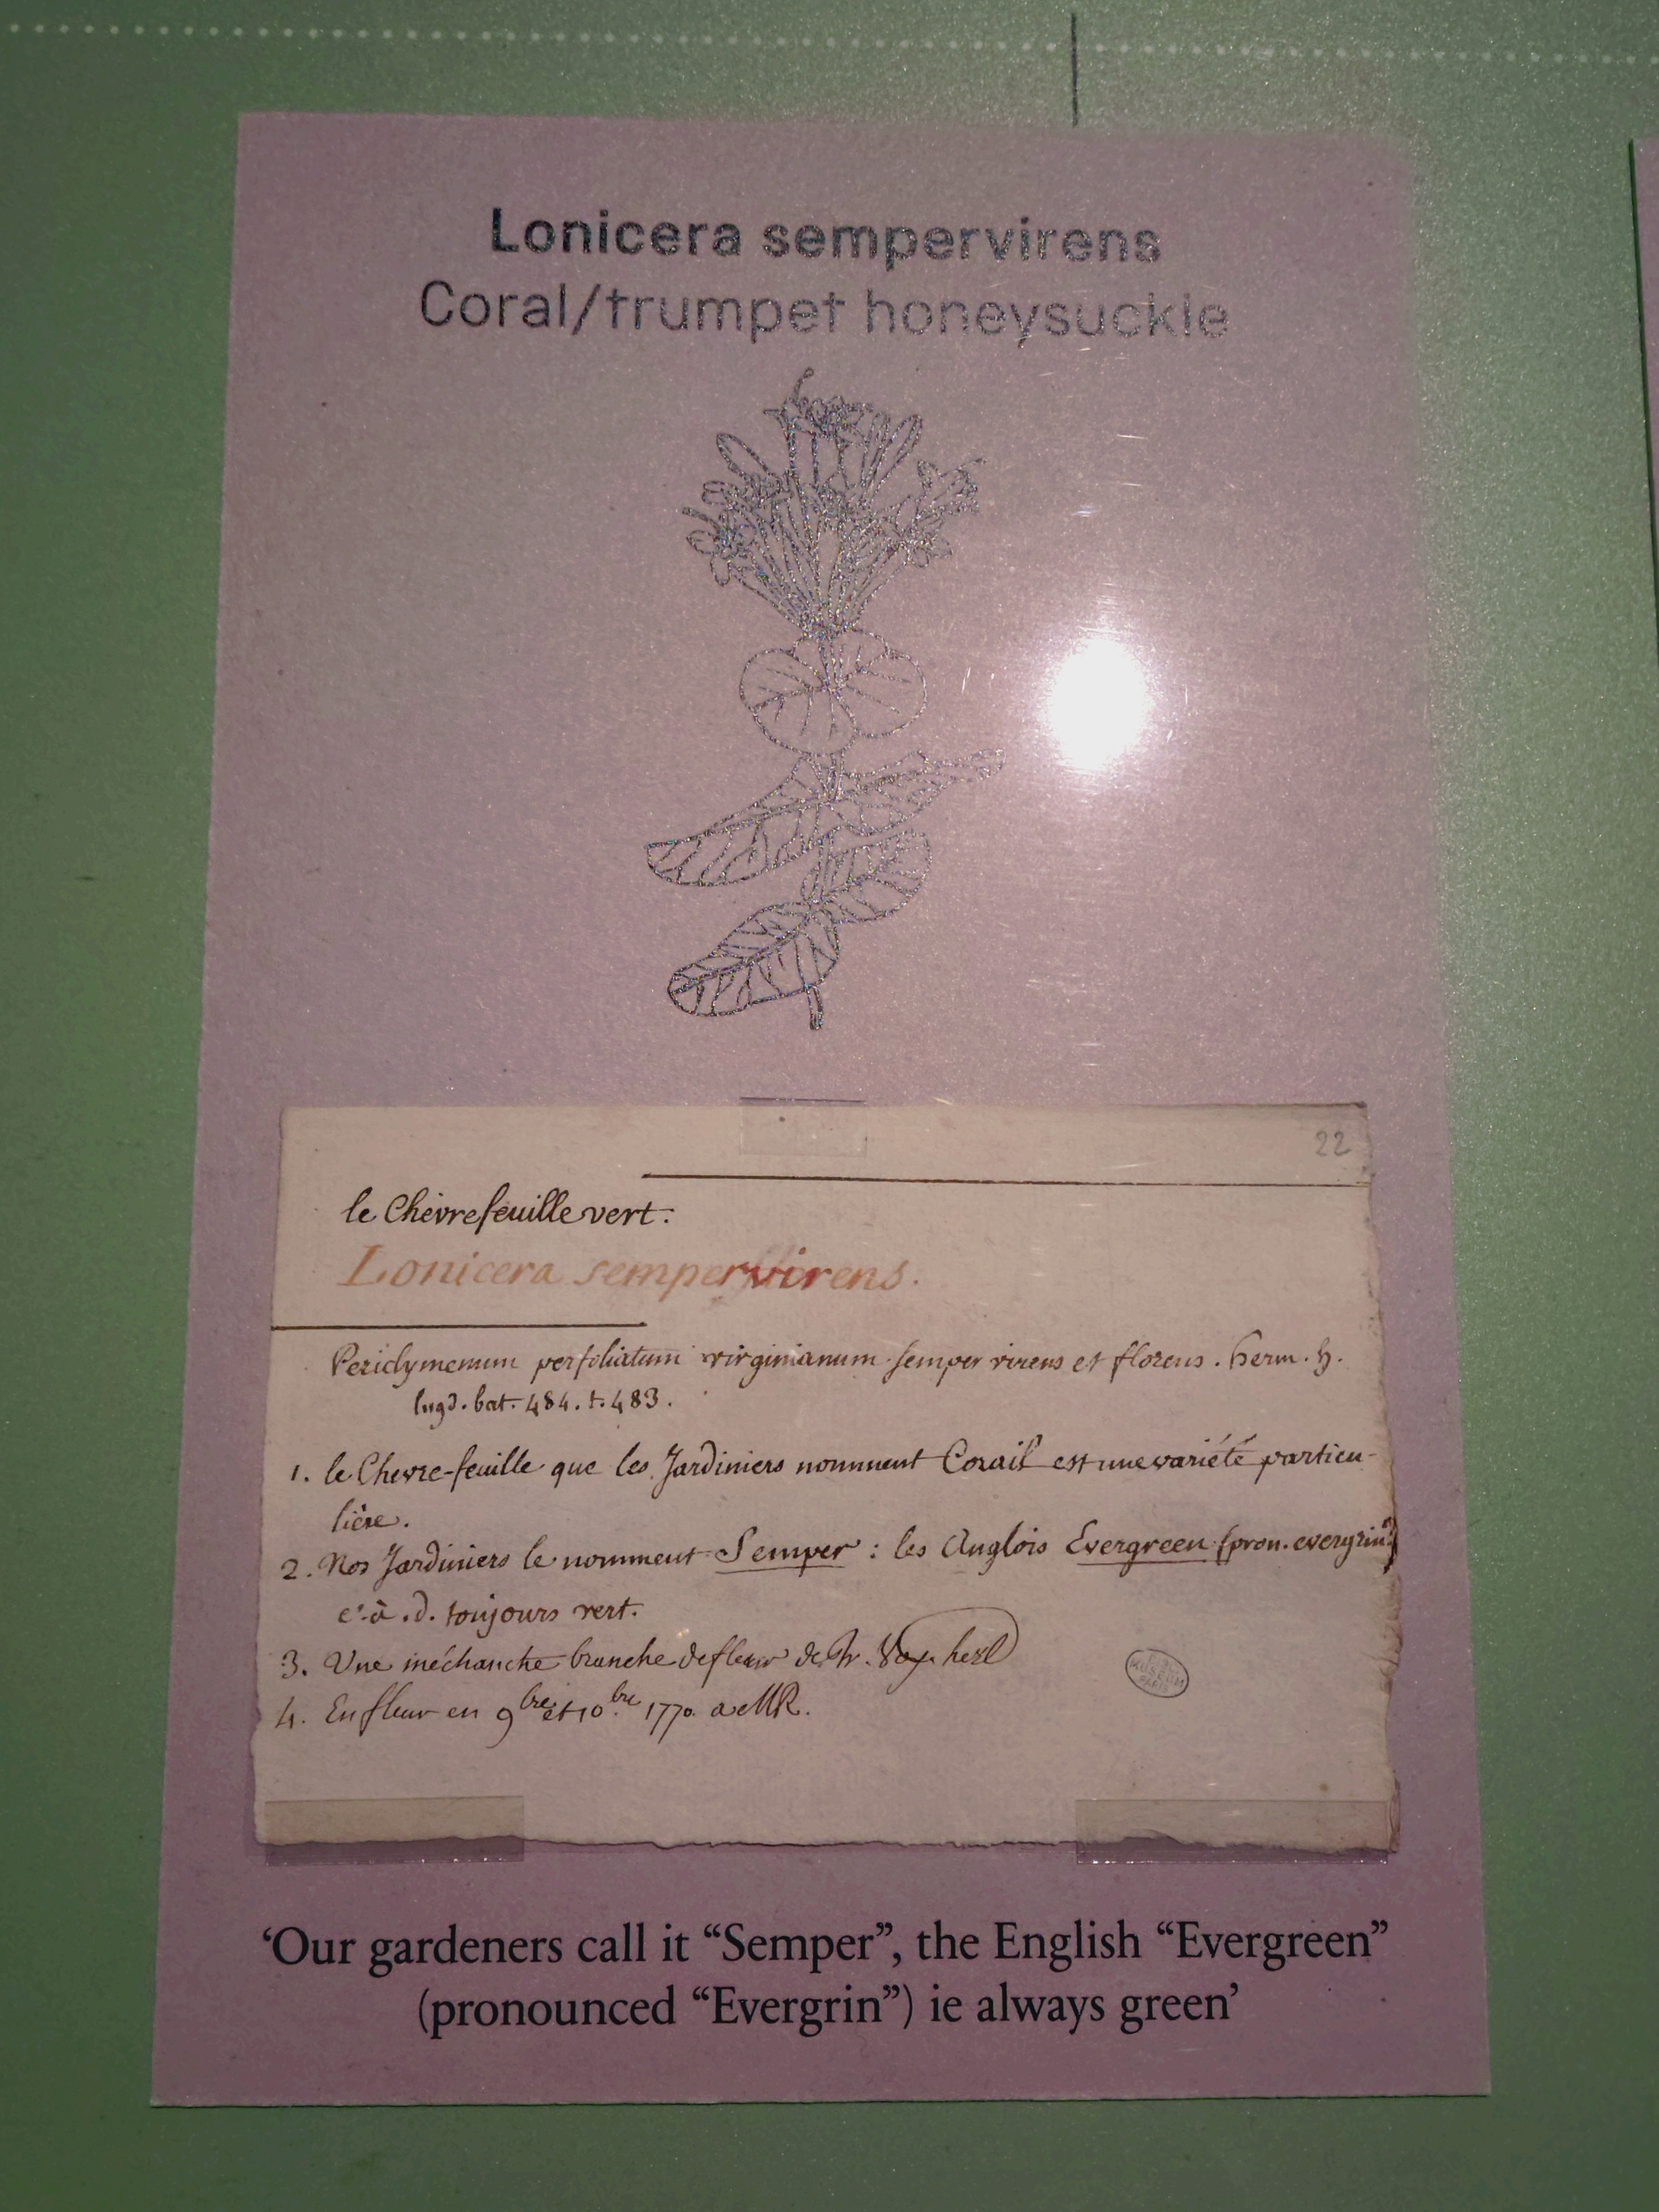 Lonicera sempervirens
Coral/trumpet honeysuckle
22
le Chèvrefeuille vert.
Lonicera sempervirens.
Periclymenum perfoliatum virginianum semper virens et florens. herm. h.
lugd. bat. 484. t. 483.
1. le Chevre-feuille que les Jardiniers nomment Corail est une variété particu-
lière.
2. Nos Jardiniers le nomment Semper : les Anglois Evergreen (pron. evergrin)
c'-à.d. toujours vert.
3. Une méchante branche de fleur de
4. En fleur en 9bre et 10.bre 1770. a MR.
MUSEUM
PARIS
‘Our gardeners call it “Semper”, the English “Evergreen”
(pronounced “Evergrin”) ie always green’